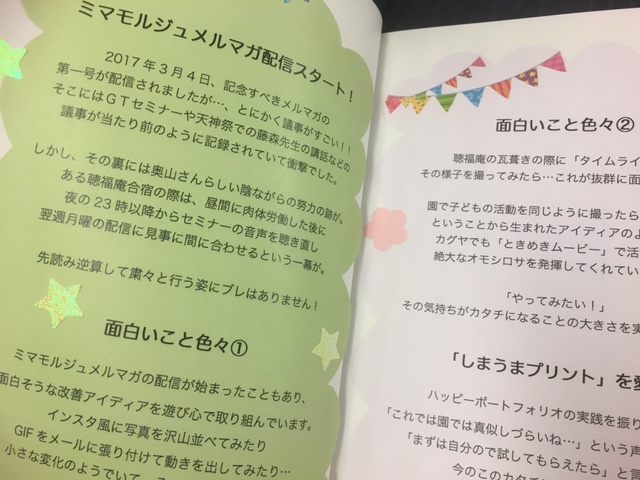 ミマモルジュメルマガ配信スタート！
2017年3月4日、記念すべきメルマガの
第一号が配信されましたが…、とにかく議事がすごい！！
そこにはGTセミナーや天神祭での藤森先生の講話などの
議事が当たり前のように記録されていて衝撃でした。
しかし、その裏には奥山さんらしい陰ながらの努力の跡が。
ある聴福庵合宿の際は、昼間に肉体労働した後に
夜の23時以降からセミナーの音声を聴き直し
翌週月曜の配信に見事に間に合わせるという一幕が。
先読み逆算して粛々と行う姿にブレはありません！
面白いこと色々①
ミマモルジュメルマガの配信が始まったこともあり、
面白そうな改善アイディアを遊び心で取り組んでいます。
インスタ風に写真を沢山並べてみたり
GIFをメールに張り付けて動きを出してみたり…
小さな変化のようでいて、
面白いこと色々②
聴福庵の瓦葺きの際に「タイムライ
その様子を撮ってみたら…これが抜群に面
園で子どもの活動を同じように撮ったら
ということから生まれたアイディアのよ
カグヤでも「ときめきムービー」で活
絶大なオモシロサを発揮してくれてい
「やってみたい！」
その気持ちがカタチになることの大きさを実
「しまうまプリント」を愛
ハッピーポートフォリオの実践を振り
「これでは園では真似しづらいね…」という声
「まずは自分ので試してもらえたら」と言
今のこのカタチ